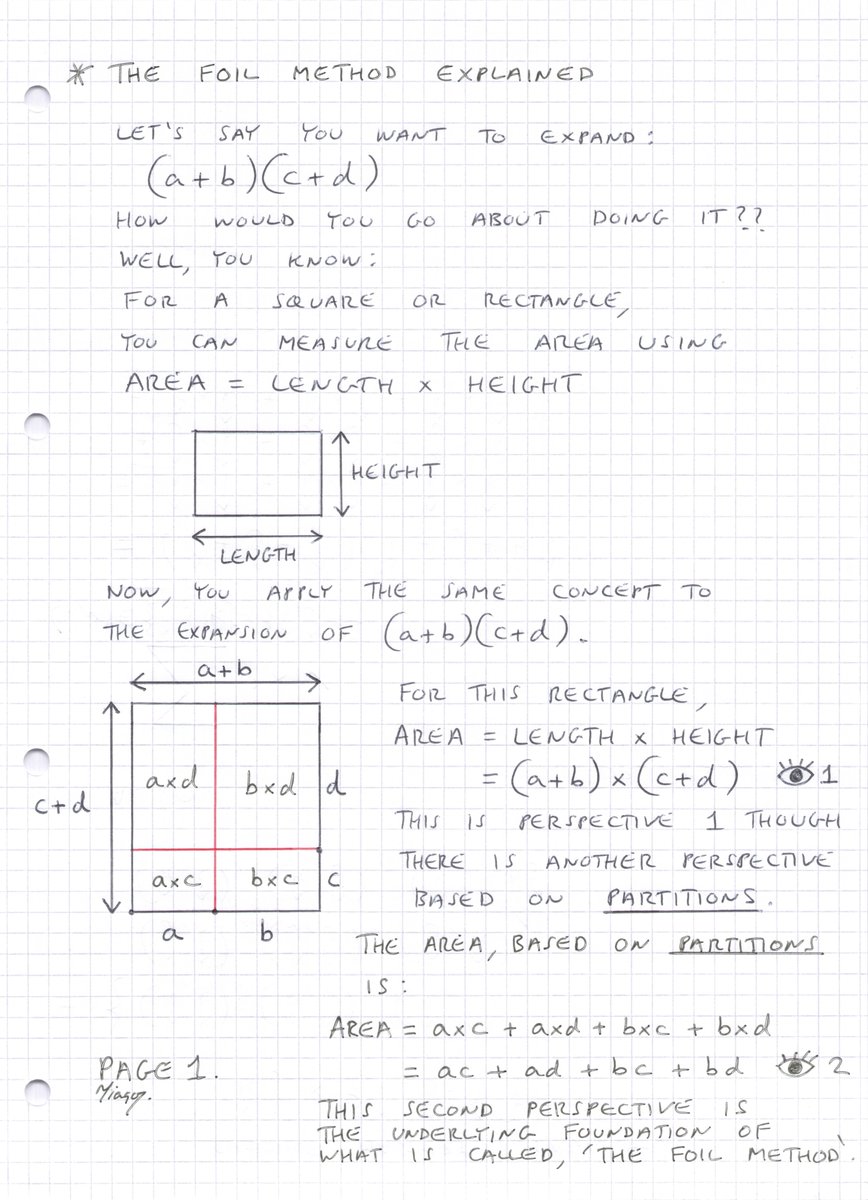 * THE FOIL METHOD EXPLAINED
LET'S SAY YOU WANT TO EXPAND:
(a+b)(c+d)
HOW WOULD YOU GO ABOUT DOING IT??
WELL, YOU KNOW:
FOR A SQUARE OR RECTANGLE,
YOU CAN MEASURE THE AREA USING
AREA = LENGTH x HEIGHT
HEIGHT
LENGTH
NOW, YOU APPLY THE SAME CONCEPT TO
THE EXPANSION OF (a+b)(c+d).
a+b
c+d
axd
bxd
d
axc
bxc
c
a
b
FOR THIS RECTANGLE,
AREA = LENGTH x HEIGHT
= (a+b) x (c+d) 1
THIS IS PERSPECTIVE 1 THOUGH
THERE IS ANOTHER PERSPECTIVE
BASED ON PARTITIONS.
THE AREA, BASED ON PARTITIONS
IS:
AREA = axc + axd + bxc + bxd
= ac + ad + bc + bd 2
THIS SECOND PERSPECTIVE IS
THE UNDERLYING FOUNDATION OF
WHAT IS CALLED, 'THE FOIL METHOD'.
PAGE 1.